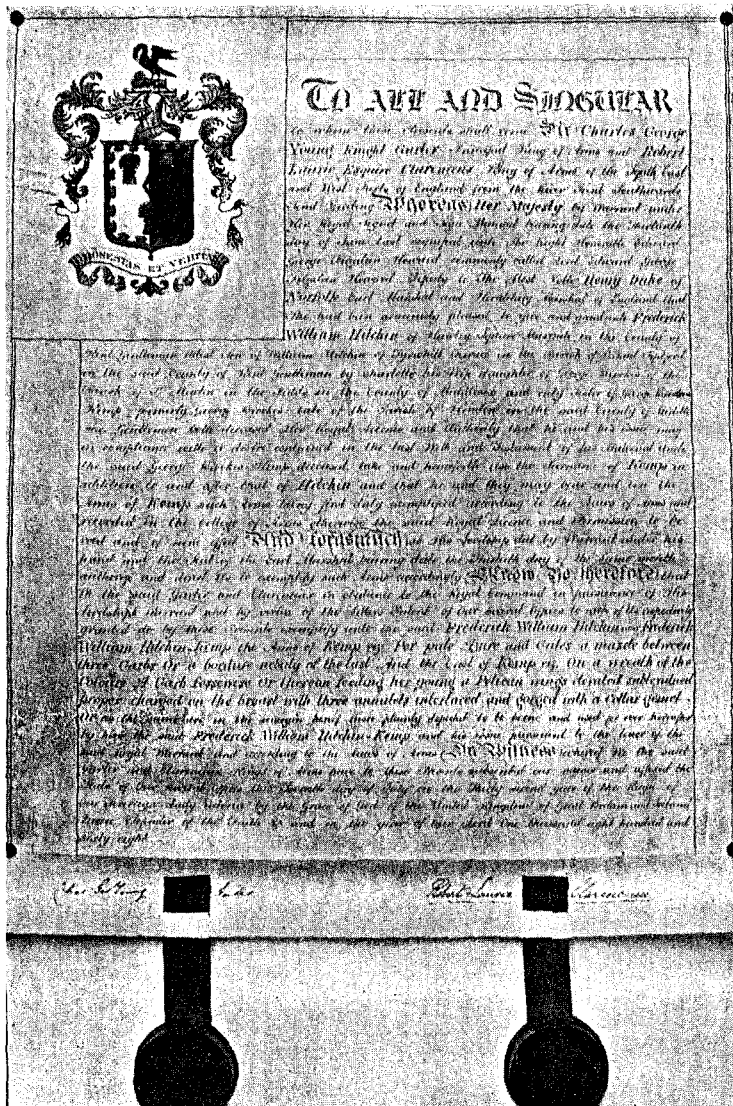 HONESTAS ET VERITAS
TO ALL AND SINGULAR
to whom these Presents shall come Sir Charles George
Young Knight Garter Principal King of Arms and Robert
Laurie Esquire Clarenceux King of Arms of the South East
and West Parts of England from the River Trent Southwards
Send Greeting Whereas Her Majesty by Warrant under
Her Royal Signet and Sign Manual bearing date the
day of June last signified unto the Right Honorable Edward
George Fitzalan Howard commonly called Lord Edward George
Fitzalan Howard Deputy to The Most Noble Henry Duke of
Norfolk Earl Marshal and Hereditary Marshal of England that
She had been graciously pleased to give and grant unto Frederick
William Hitchin of Hawley Square Margate in the County of
Kent Gentleman eldest son of William Hitchin of in the Parish of
in the said County of Kent Gentleman by Charlotte his wife daughter of George of the
Parish of St Martin in the Fields in the County of Middlesex and only sister of George
Kemp formerly George late of the Parish of Hendon in the said County of
Gentleman both deceased Her Royal licence and Authority that he and his issue may
in compliance with a desire contained in the last Will and Testament of his maternal Uncle
the said George Kemp deceased take and henceforth use the surname of Kemp in
addition to and after that of Hitchin and that he and they may bear and use the
Arms of Kemp such Arms being first duly exemplified according to the Laws of Arms and
recorded in the College of Arms otherwise the said Royal licence and Permission to be
void and of none effect And forasmuch as His Lordship did by Warrant under his
hand and the Seal of the Earl Marshal bearing date the day of the same month
authorize and direct Us to exemplify such Arms accordingly Know Ye therefore that
We the said Garter and Clarenceux in obedience to the Royal Command in pursuance of His
Lordships Warrant and by virtue of the Letters Patent of Our several Offices to each of Us respectively
granted do by these Presents exemplify unto the said Frederick William Hitchin now Frederick
William Hitchin-Kemp the Arms of Kemp viz: Per pale Azure and Gules a mascle between
three Garbs Or a bordure nebuly of the last And the Crest of Kemp viz: On a wreath of the
Colours A Garb fesseways Or thereon feeding her young a Pelican wings elevated and endorsed
proper charged on the breast with three annulets interlaced and gorged with a Collar gemel
Or as the same are in the margin hereof more plainly depicted to be borne and used for ever hereafter
by him the said Frederick William Hitchin-Kemp and his issue pursuant to the tenor of the
said Royal Warrant and according to the Laws of Arms In Witness whereof We the said
Garter and Clarenceux Kings of Arms have to these Presents subscribed our names and affixed the
Seals of Our several Offices this Seventh day of July in the Thirty second year of the Reign of
our Sovereign Lady Victoria by the Grace of God of the United Kingdom of Great Britain and Ireland
Queen Defender of the Faith &c and in the year of Our Lord One thousand eight hundred and
sixty eight
Chas Geo Young Garter Robert Laurie Clarenceux